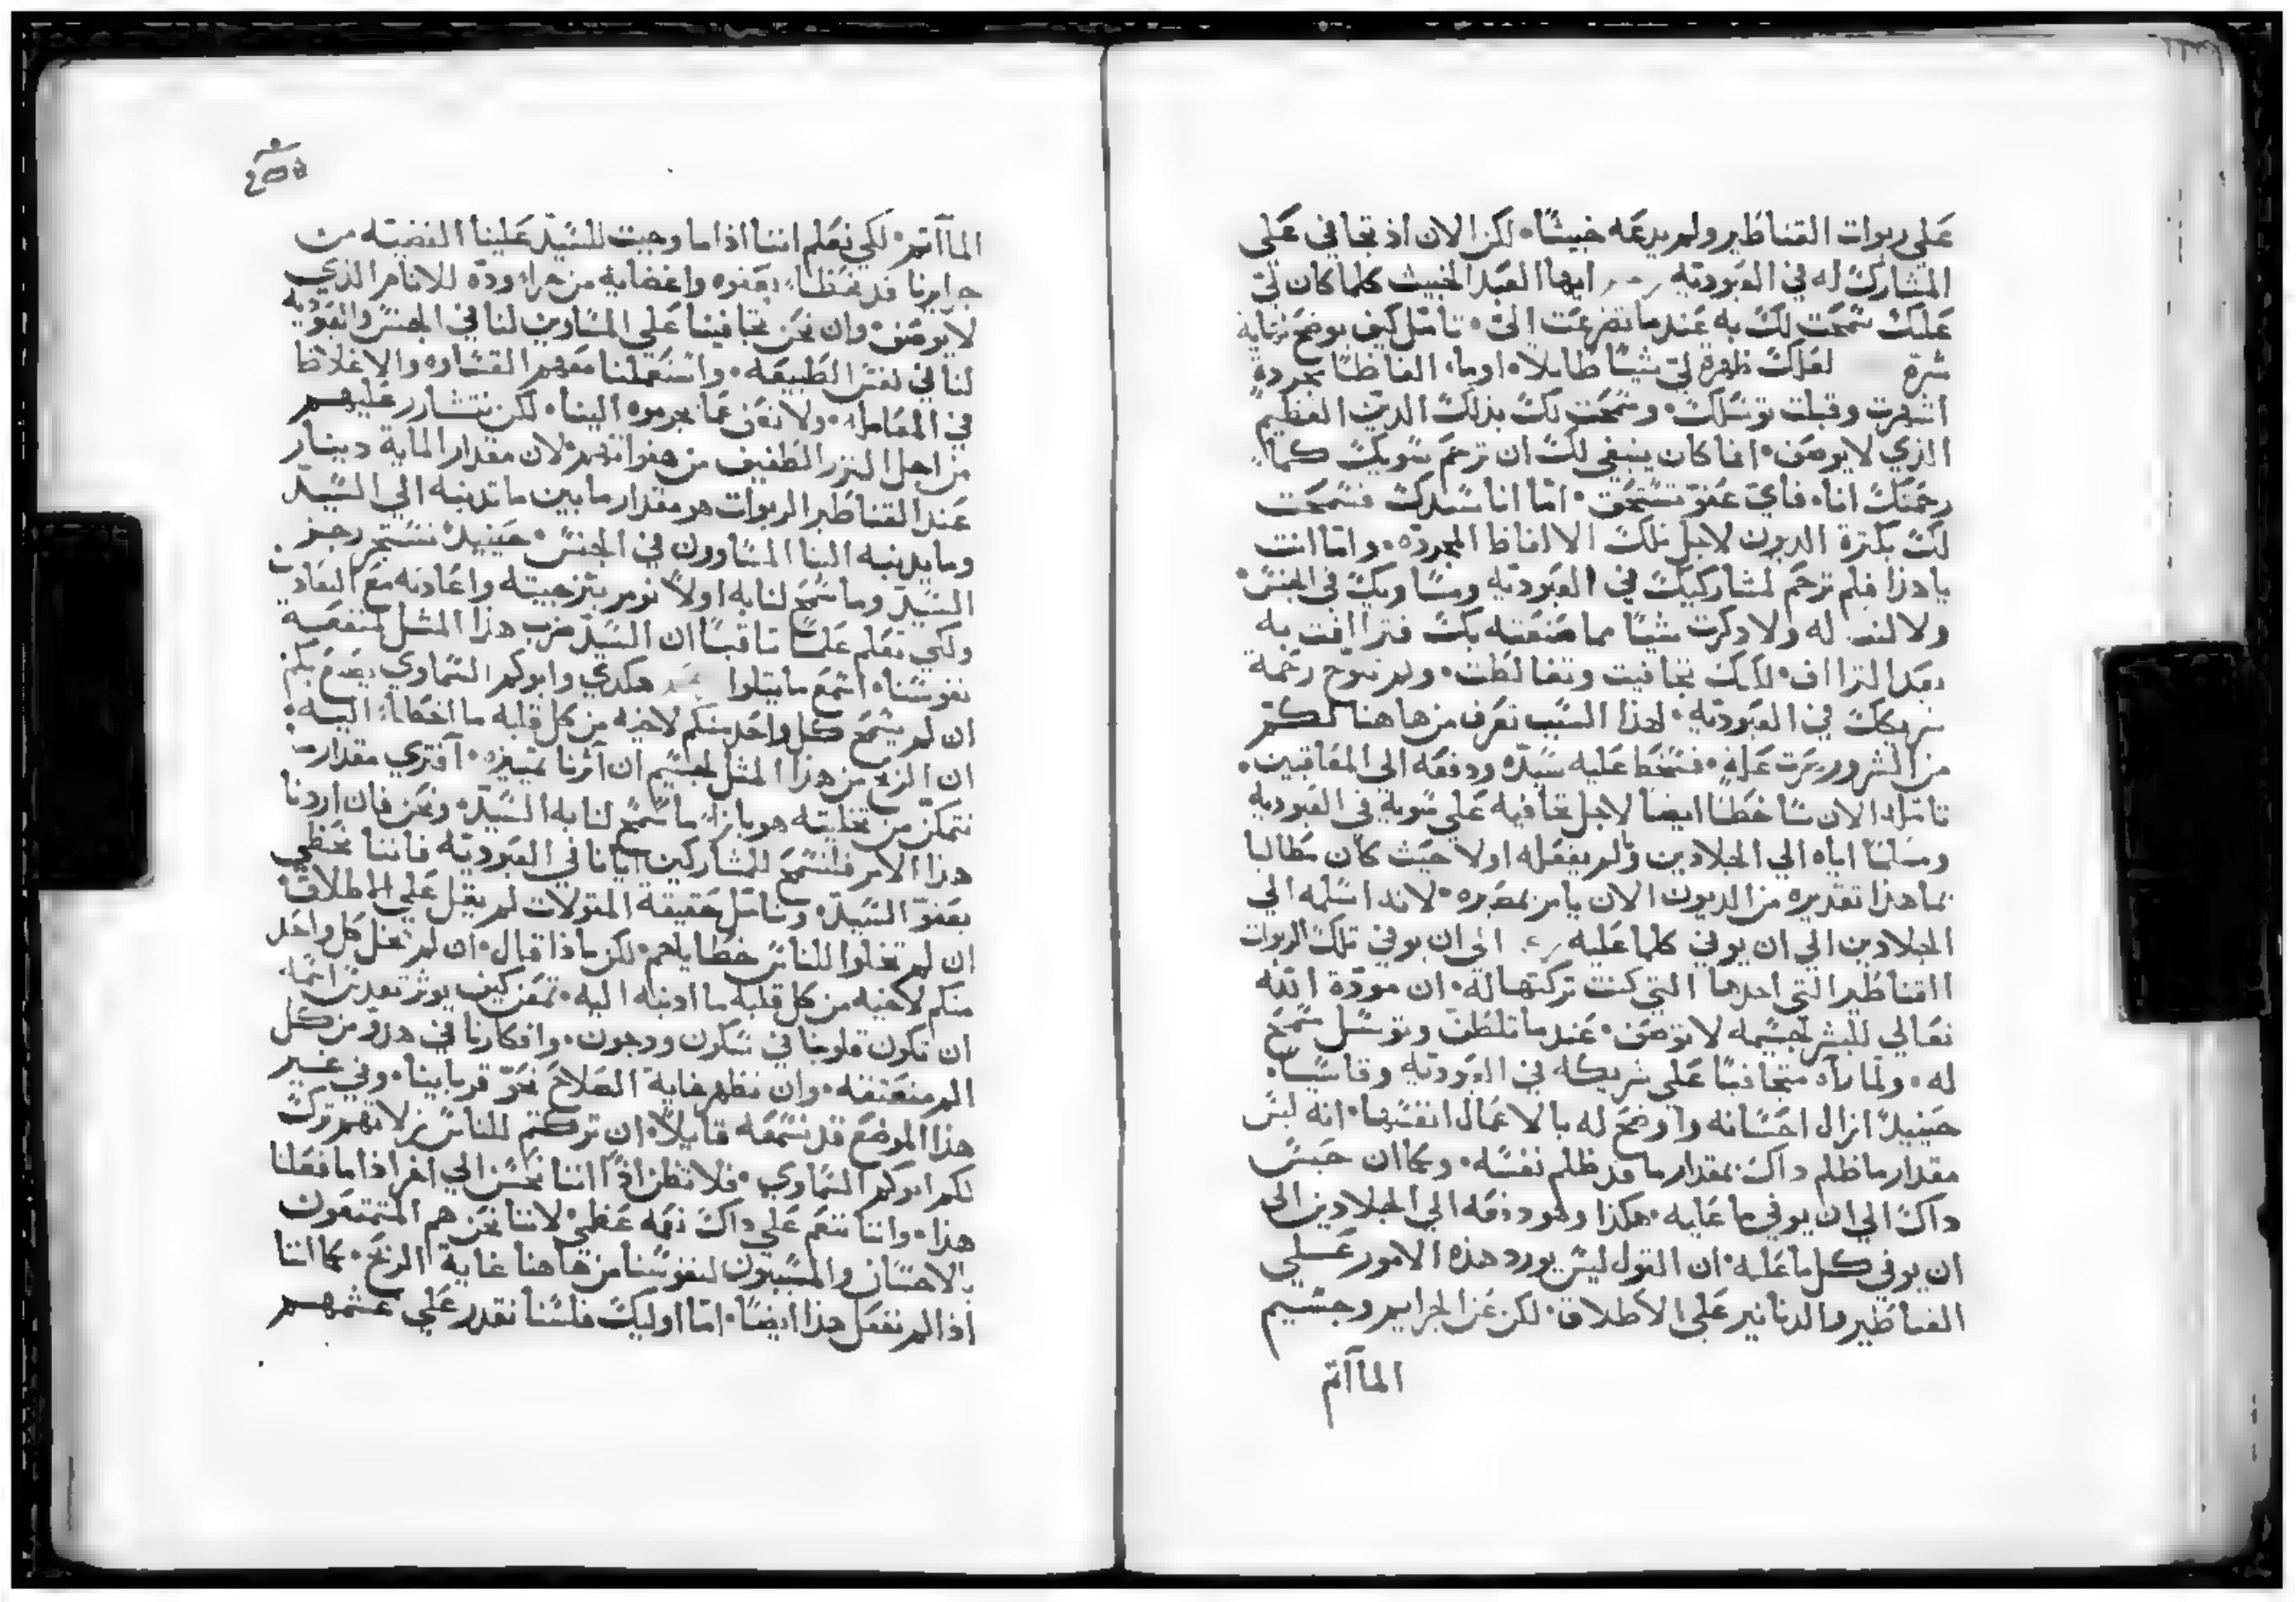 على ربوات القناطير ولم يدعه خبيثًا. لكن الان اذ تجافي على
المشارك له في العبوديّة ايها العبد الخبيث كلما كان لي
عليك سمحت لك به عندما تضرعت اليّ. تامّل كيف يوضح غاية
شرّه لعلك ظهرة لي شيًا طايلاً. اوما الفاظًا مجردة
وقبلت توسّلك. وسمحت لك بذلك الدين العظيم
الذي لا يوصف. افما كان ينبغي لك ان ترحم سويك كما
رحمتك انا. فايّ عفو تستحق. امّا انا سيدك فسمحت
لك بكثرة الديون لاجل تلك الالفاظ المجردة. وامّا انت
يا هذا فلم ترحم لمشاركيك في العبوديّة ومساويك في الجنس.
ولا له ولا ذكرت شيًا مما صنعته بك فتراافت به
بعد التراأف. لكنك تجافيت وتغالظت. ولم ترحمة
شريكك في العبوديّة. لهذا السبب تعرف من هاهنا لكثر
من الشرور عرت فسخط عليه سيّده ودفعه الى المعاقبين.
تامّله الان ساخطًا ايضًا لاجل تجافيه على سويه في العبودية
ومسلمًا اياه الي الجلادين ولم يفعله اولا حيث كان مطالبا
بما هذا تقديره من الديون الان يامر لانه اسلمه الي
الجلادين الي ان يوفي كلما عليه الى ان يوفي تلك الربوات
القناطير التي اخذها التي كنت تركتها له. ان مودّة الله
تعالي للبشر لجسيمه لا توصف. عندما تلطف وتوسّل سمح
له. ولمّا رآه متجافيًا على شريكه في العبوديّة وقاسيًا.
حينيذٍ ازال احسانه واوضح له بالاعمال انفسها. انه ليس
مقدار ما ظلم داك بمقدار ما قد ظلم نفسه. وكما ان حبس
داك الي ان يوفي ما عليه. هكذا وهو دفعه الي الجلادين الى
ان يوفي كل ما عليه. ان القول ليس يورد هذه الامور علي
القناطير والدنانير على الاطلاق. لكن عن الجرايم وجسيم
الماآثم
الماآثم. لكي نعلم اننا اذا ما وجبت للسيّد علينا القضيّه من
جرايرنا قد نحظا بعفوه واغضايه من جراء ودّه للانام الذي
لا يوصف. وان نحن تجافينا على المساوين لنا في الجنس والعبوديّة
لنا في نفس الطبيعه. واستعملنا معهم القساوه والاغلاظ
في المعامله. ولا نعف عما يجرموه الينا. لكن نتشارر عليهم
من اجل النزر الطفيف من هفواتهم. لان مقدار الماية دينار
عند القناطير الربوات هو مقدار ما بين ما نذنبه الي السيّد
وما يذنبه الينا المساوون في الجنس. حينيذٍ نستجر رجز
السيّد وما سمح لنا به اولاً نومر بتزجيته واعادته مع العذاب
ولكي نعلم علمًا ثاقبًا ان السيّد ضرب هذا المثل لمنفعة
نفوسنا. اسمع ما يتلوا هكذي وابوكم السماوي يصنع بكم
ان لم يسمح كل واحد منكم لاخيه من كل قلبه ما اخطاء اليه.
ان الربح من هذا المثل لجسيم ان آثرنا تمييزه. آفتري مقدار ما
نتمكّن من تخليته هو بازاء ما سمح لنا به السيّد. ونحن فان اردنا
هذا الامر فلنسمح للمشاركين ايانا في العبوديّة فاننا نحظي
بعفوّ السيّد. وتامّل حقيقة المقولات لم يقل على الاطلاق
ان لم تخلوا للناس خطاياهم. لكن ماذا قال. ان لم يخل كل واحد
منكم لاخيه من كل قلبه ما اذنبه اليه. تمعن كيف يوثر
ان تكون قلوبنا في سكون ودجون. وافكارنا في هدوّ من كل
الم منعتقه. وان نظهر غاية الصلاح نحو قرباينا. وفي غير
هذا الموضع قد نسمعه قايلاً. ان تركتم للناس زلاتهم ترك
لكم ابوكم السماوي. فلا تظن اذًا اننا نحسن الي اخر اذا ما فعلنا
هذا. واننا ننعم على داك نعمه عظمى. لاننا نحن هم المتمتعون
بالاحسان والمسببون لنفوسنا من هاهنا غاية الربح. كما اننا
اذا لم نفعل هذا ايضًا. امّا اوليك فلسنا نقدر على غشمهم